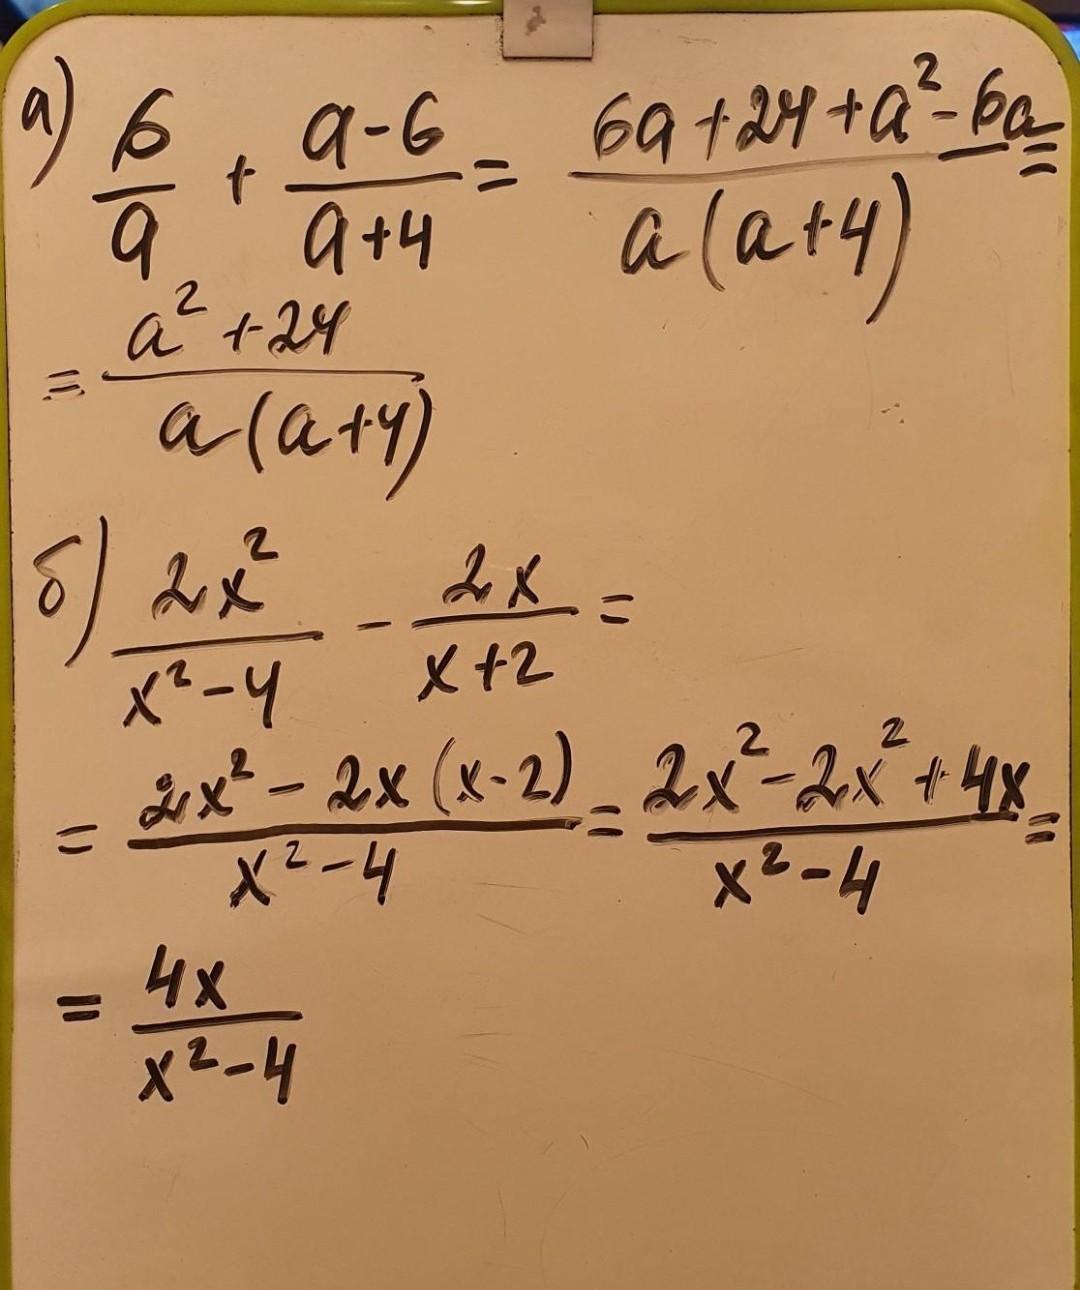 а) 6/a + (a-6)/(a+4) = (6a+24+a²-6a)/(a(a+4)) =
= (a²+24)/(a(a+4))
б) 2x²/(x²-4) - 2x/(x+2) =
= (2x²-2x(x-2))/(x²-4) = (2x²-2x²+4x)/(x²-4) =
= 4x/(x²-4)